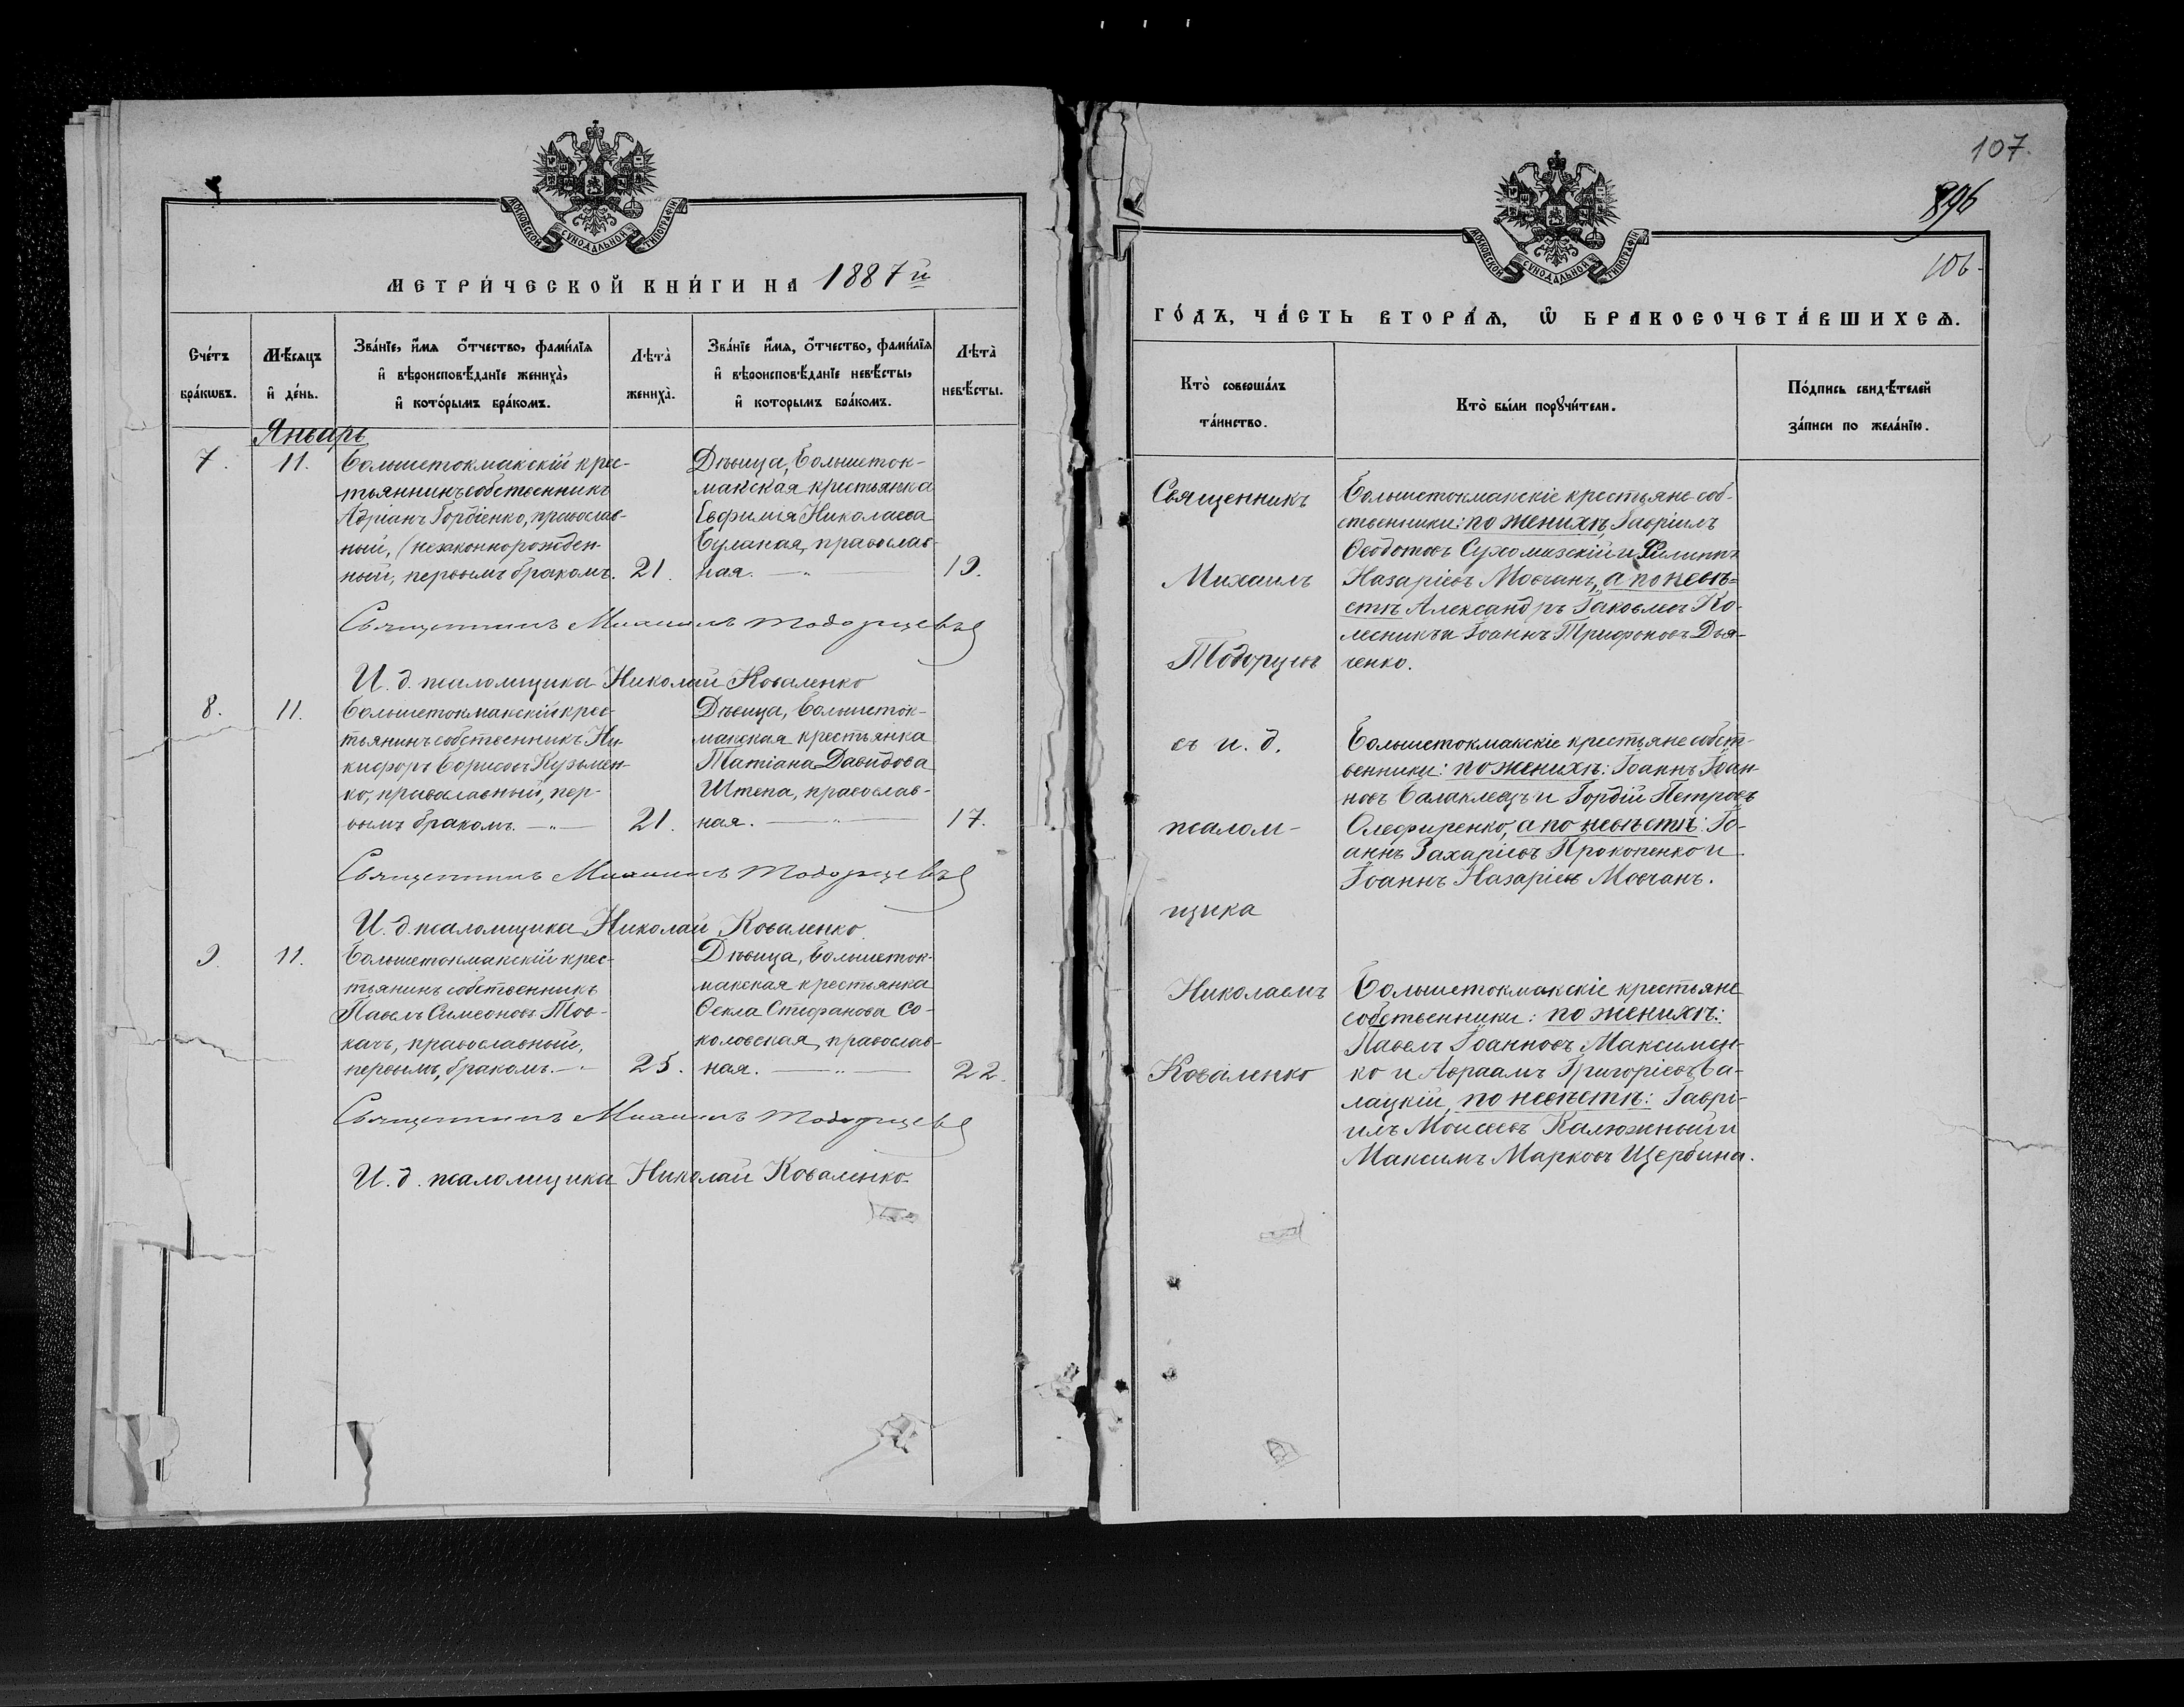 МОСКОВСКОЙ СѴНОДАЛЬНОЙ ТИПОГРАФІИ
МЕТРИ́ЧЕСКОЙ КНИ́ГИ НА 1887 й
Сче́тъ бра́кѡвъ.
Мѣ́сяцъ и҆ де́нь.
Зва́нїе, и҆́мѧ ѻ҆́тчество, фами́лїѧ
и҆ вѣроисповѣ́данїе жениха̀,
и҆ кото́рымъ бра́комъ.
Лѣта̀ жениха̀.
Зва́нїе и҆́мѧ, ѻ҆́тчество, фами́лїѧ
и҆ вѣроисповѣ́данїе невѣ́сты,
и҆ которымъ бра́комъ.
Лѣта̀ невѣ́сты.
Январь
7.
11.
Большетокмакскій крес-
тьяннинъ собственникъ
Адріанъ Гордіенко, православ-
ный, (незаконнорожден-
ный, первымъ бракомъ.
21.
Дѣвица, Большеток-
макская крестьянка
Евфимія Николаева
Буланая, православ-
ная. — „
19.
Священникъ Михаилъ Тодорцевъ
И. д. псаломщика Николай Коваленко
8.
11.
Большетокмакскій крес-
тьянинъ собственникъ Ни-
кифоръ Борисовъ Кузьмен-
ко, православный, пер-
вымъ бракомъ. — „ —
21.
Дѣвица, Большеток-
макская крестьянка
Татіана Давидова
Штепа, православ-
ная. — „ —
17.
Священникъ Михаилъ Тодорцевъ
И. д. псаломщика Николай Коваленко
9.
11.
Большетокмакскій крес-
тьянинъ собственникъ
Павелъ Симеоновъ Тов-
качъ, православный,
первымъ, бракомъ. — „
25.
Дѣвица, Большеток-
макская крестьянка
Ѳекла Стефанова Со-
коловская, православ-
ная. — „ —
22.
Священникъ Михаилъ Тодорцевъ
И. д. псаломщика Николай Коваленко
107.
896
106-
МОСКОВСКОЙ СѴНОДАЛЬНОЙ ТИПОГРАФІИ
ГО́ДЪ, ЧА́СТЬ ВТОРА́Ѧ, Ѡ҆ БРАКОСОЧЕТА́ВШИХСѦ.
Кто̀ соверша́лъ
та́инство.
Кто̀ бы́ли порꙋчи́тели.
По́дпись свидѣ́телей
за́писи по жела́нїю.
Священникъ
Михаилъ
Тодорцевъ
съ и. д.
псалом-
щика
Николаемъ
Коваленко
Большетокмакскіе крестьяне соб-
ственники: по женихѣ, Гавріилъ
Ѳеодотовъ Сухомизскій и Филиппъ
Назаріевъ Мовчанъ, а по невѣ-
стѣ Александръ Іаковлевъ Ко-
лесникъ и Іоаннъ Трифоновъ Дья-
ченко.
Большетокмакскіе крестьяне собст-
венники: по женихѣ: Іоаннъ Іоан-
новъ Балаклецъ и Гордій Петровъ
Олефиренко, а по невѣстѣ: Іо-
аннъ Захаріевъ Прокопенко и
Іоаннъ Назаріевъ Мовчанъ.
Большетокмакскіе крестьяне
собственники: по женихѣ:
Павелъ Іоанновъ Максимен-
ко и Авраамъ Григоріевъ Ба-
лацкій, по невѣстѣ: Гаврі-
илъ Моисеевъ Калюжный и
Максимъ Марковъ Щербина.